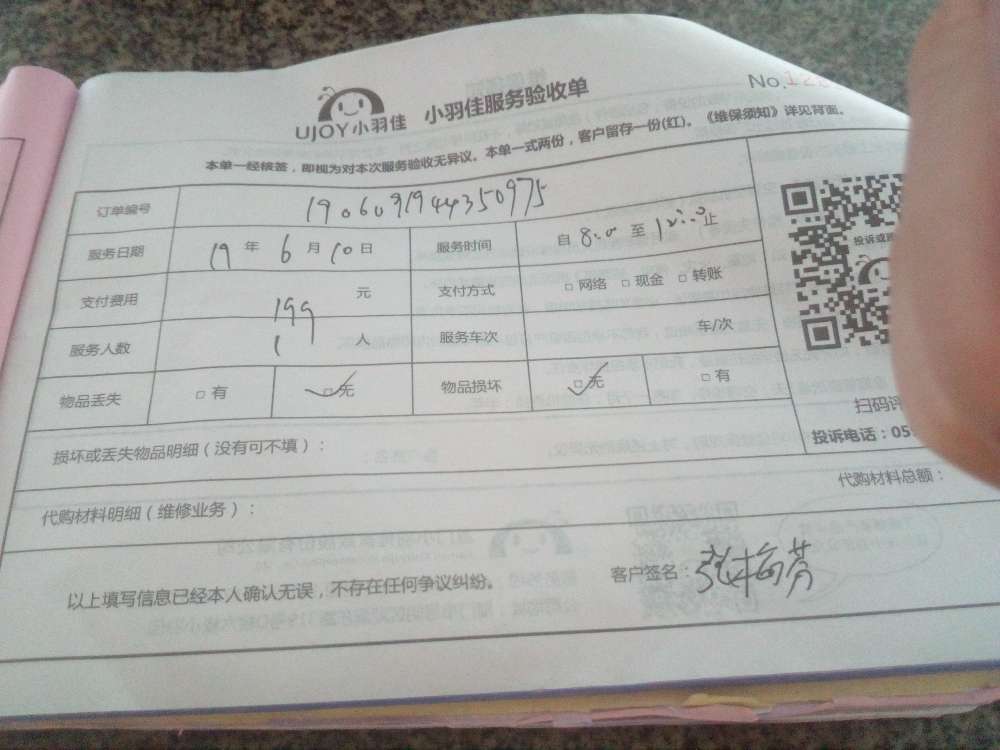 UJOY小羽佳 小羽佳服务验收单 No.12
本单一经核签，即视为对本次服务验收无异议。本单一式两份，客户留存一份(红)。《维保须知》详见背面。
订单编号 1906091944350975
服务日期 19 年 6 月 10 日 服务时间 自 8:00 至 12:00 止
支付费用 199 元 支付方式 □ 网络 □ 现金 □ 转账
服务人数 1 人 服务车次 车/次
物品丢失 □ 有 □ 无 物品损坏 □ 无 □ 有
投诉或
扫码评
投诉电话：05
损坏或丢失物品明细（没有可不填）：
代购材料明细（维修业务）： 代购材料总额：
以上填写信息已经本人确认无误，不存在任何争议纠纷。 客户签名：